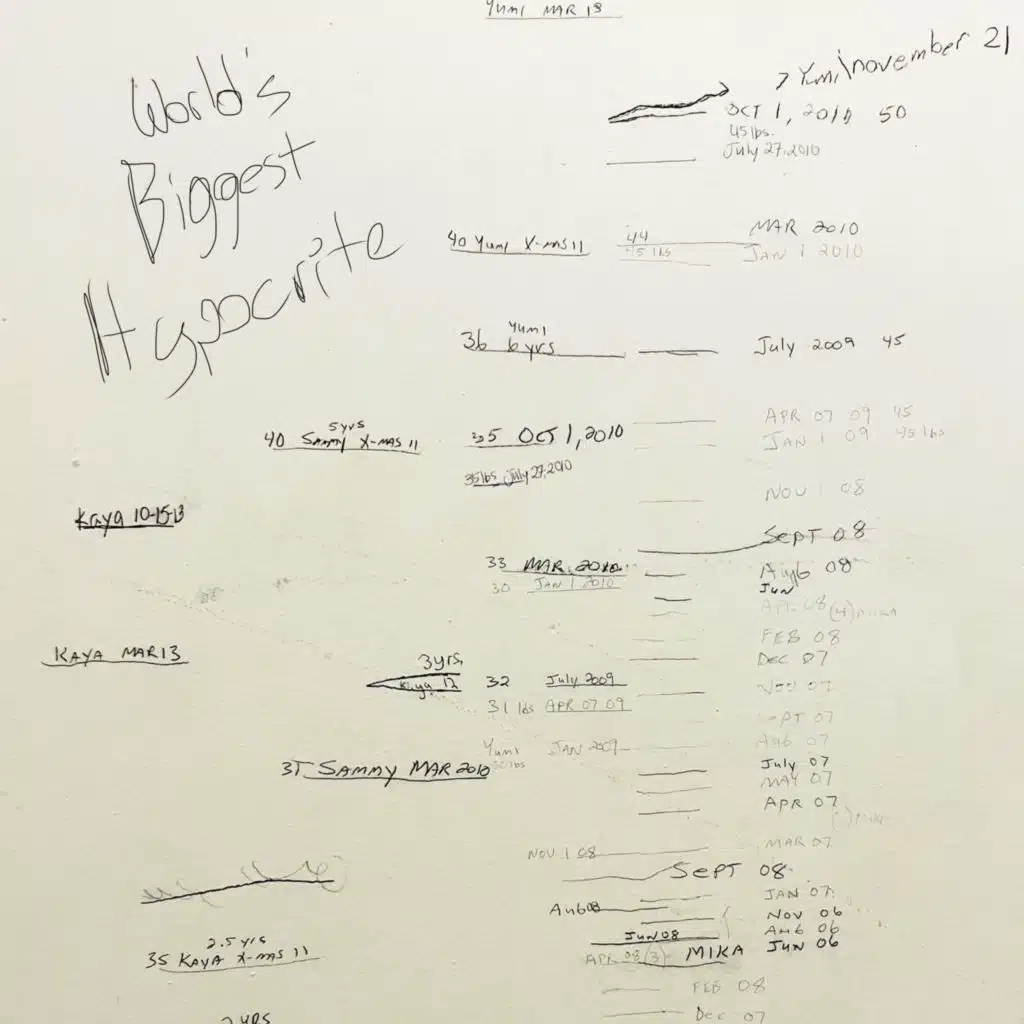 Yumi MAR 13
World's
Biggest
Hypocrite
Yumi november 21
OCT 1, 2010 50
45 lbs.
July 27, 2010
40 Yumi X-MAS 11
44
MAR 2010
45 lbs
JAN 1 2010
Yumi
36 6 yrs
July 2009 45
5 yrs
40 SAMMY X-MAS 11
35 OCT 1, 2010
APR 07 09 45
JAN 1 09 45 lbs
35 lbs July 27, 2010
NOV 1 08
Kaya 10-15-13
SEPT 08
33 MAR. 2010
AUG 08
30 JAN 1 2010
JUN
APR 08 (4)
FEB 08
KAYA MAR 13
DEC 07
3 yrs.
Kaya 12
32 July 2009
NOV 07
31 lbs APR 07 09
SEPT 07
Yumi JAN 2009
AUG 07
30 lbs
37 SAMMY MAR 2010
July 07
MAY 07
APR 07
MAR 07
NOV 1 08
SEPT 08
JAN 07
AUG 08
NOV 06
AUG 06
JUN 08
JUN 06
2.5 yrs
35 KAYA X-MAS 11
APR 08 (3)
MIKA
FEB 08
DEC 07
2 YRS